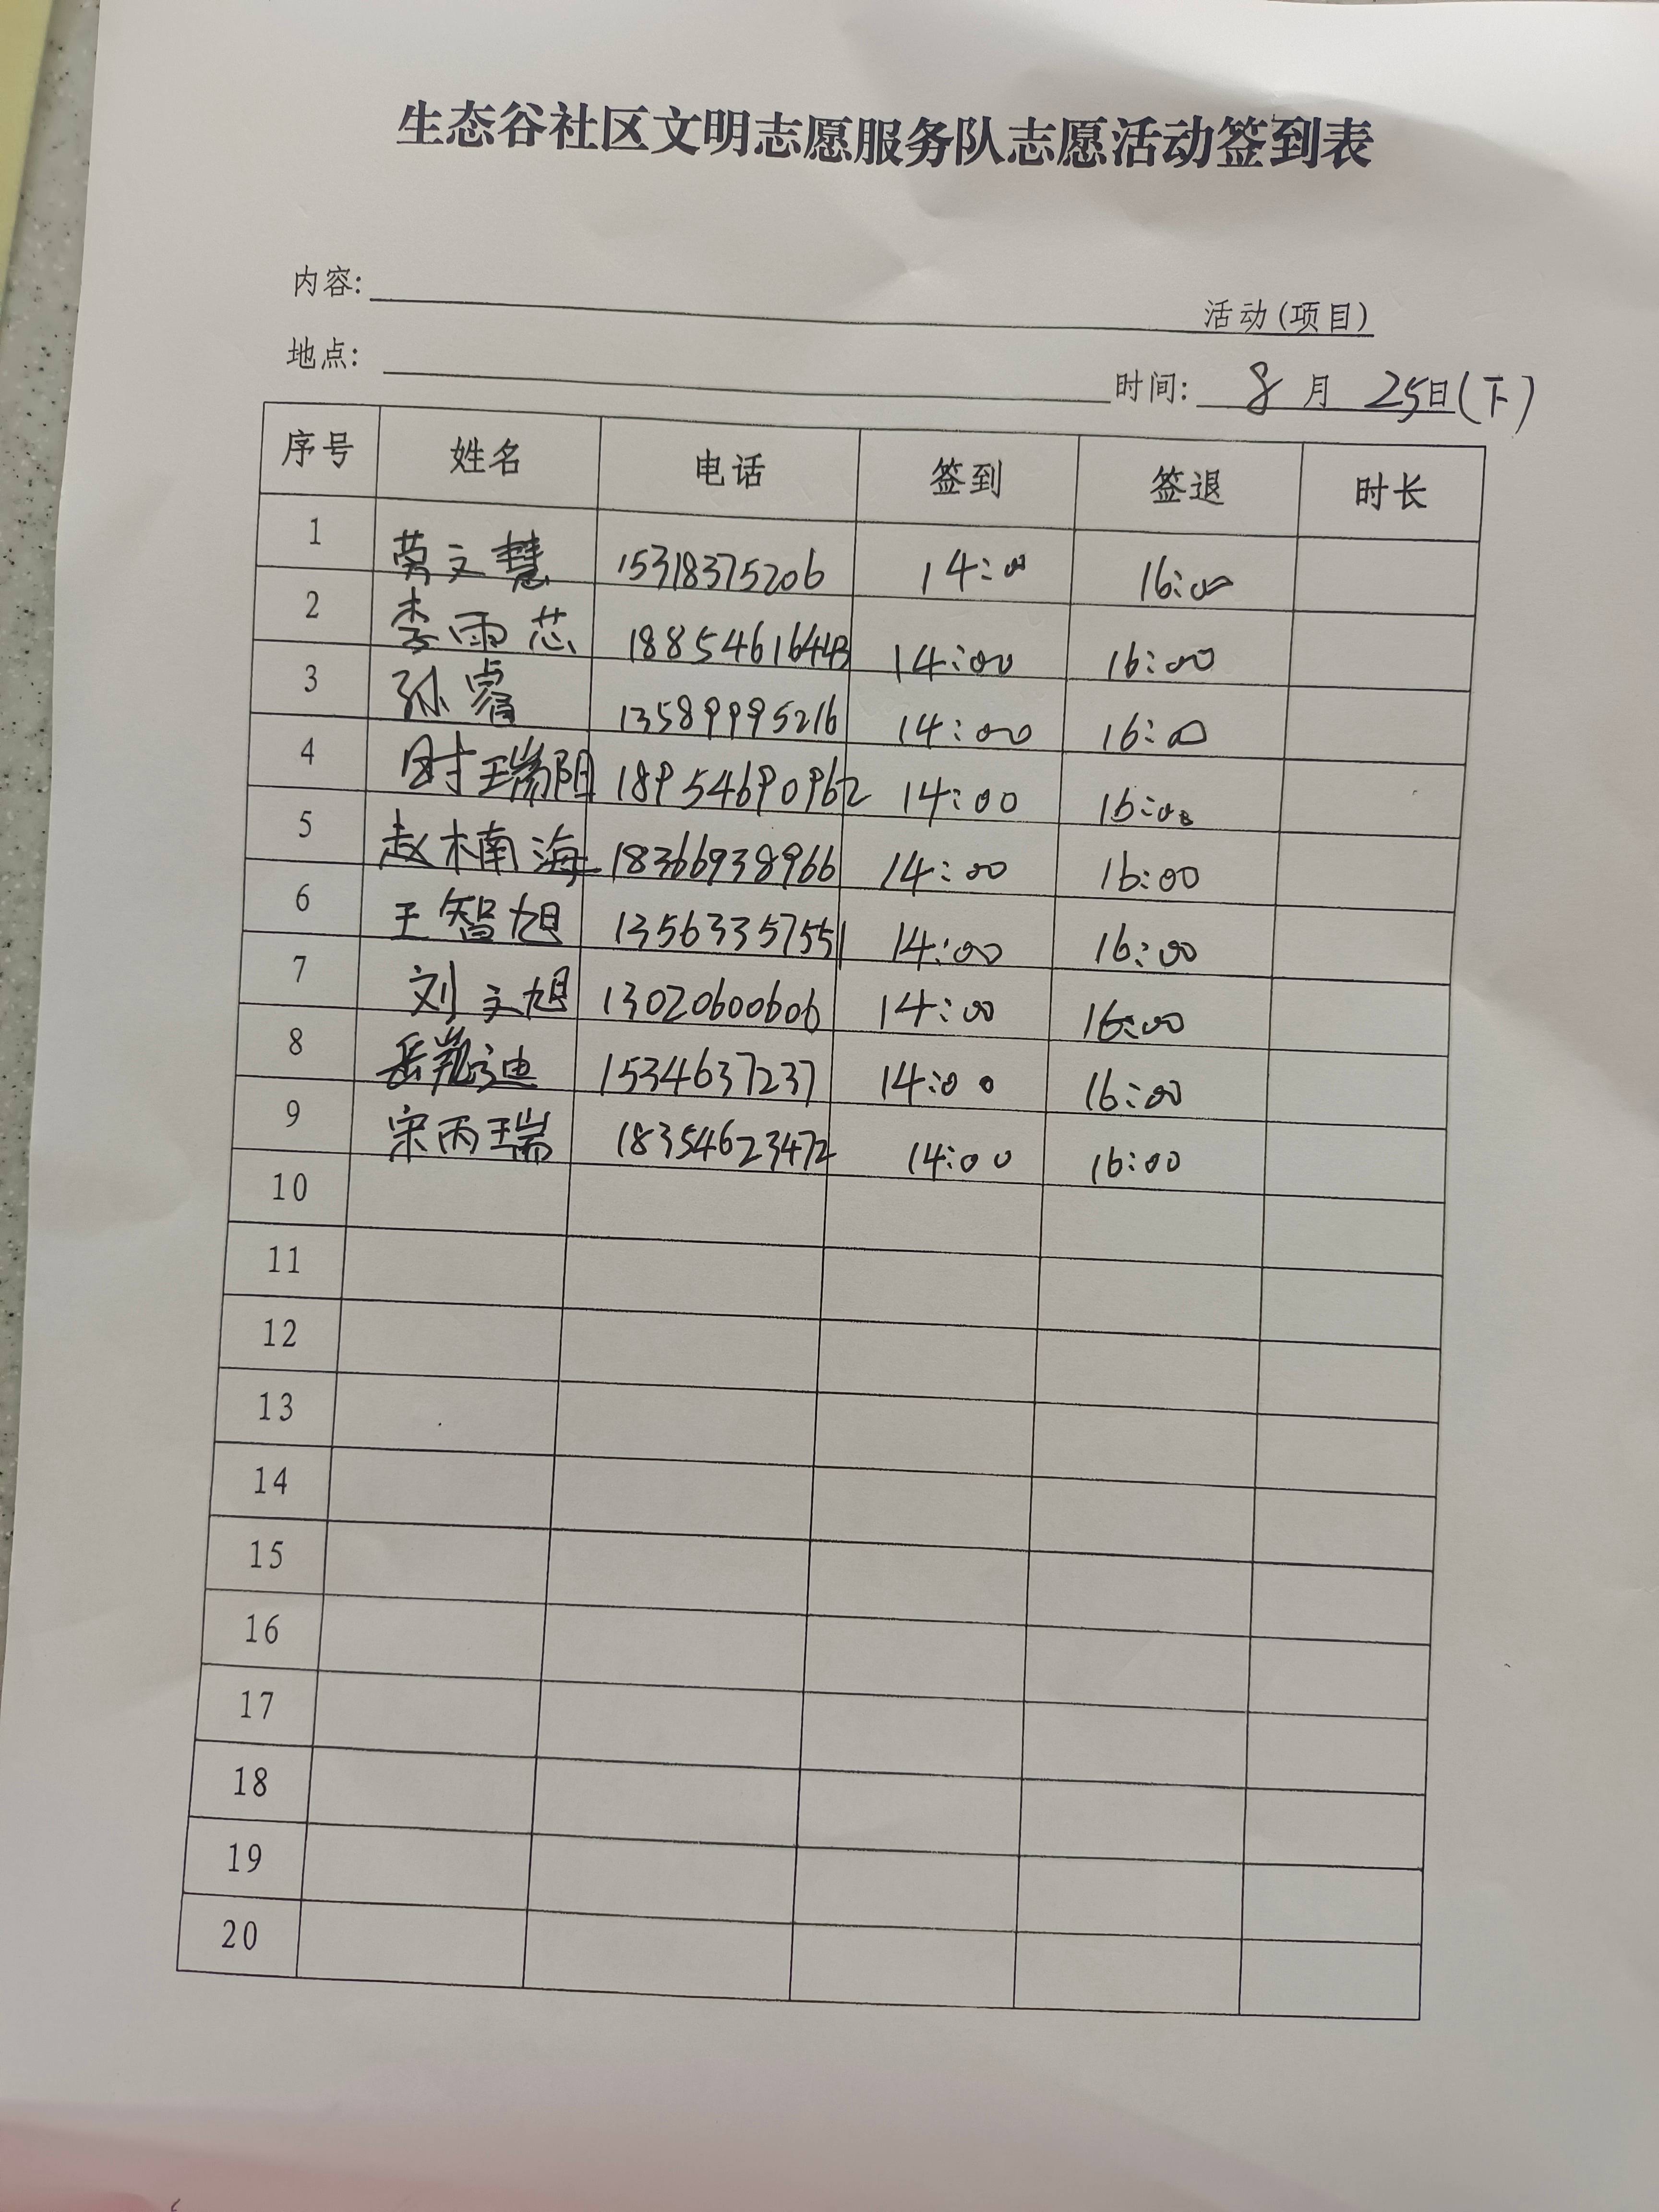 生态谷社区文明志愿服务队志愿活动签到表
内容: 活动(项目)
地点: 时间: 8月25日(下)
序号 姓名 电话 签到 签退 时长
1 文慧 15318375206 14:00 16:00
2 李雨芯 18854616443 14:00 16:00
3 孙睿 13589995216 14:00 16:00
4 时瑞阳 18954690962 14:00 16:00
5 赵楠海 18366938966 14:00 16:00
6 王智旭 13563357551 14:00 16:00
7 刘文旭 13020600606 14:00 16:00
8 岳凯迪 1534637237 14:00 16:00
9 宋丙瑞 18354623472 14:00 16:00
10
11
12
13
14
15
16
17
18
19
20